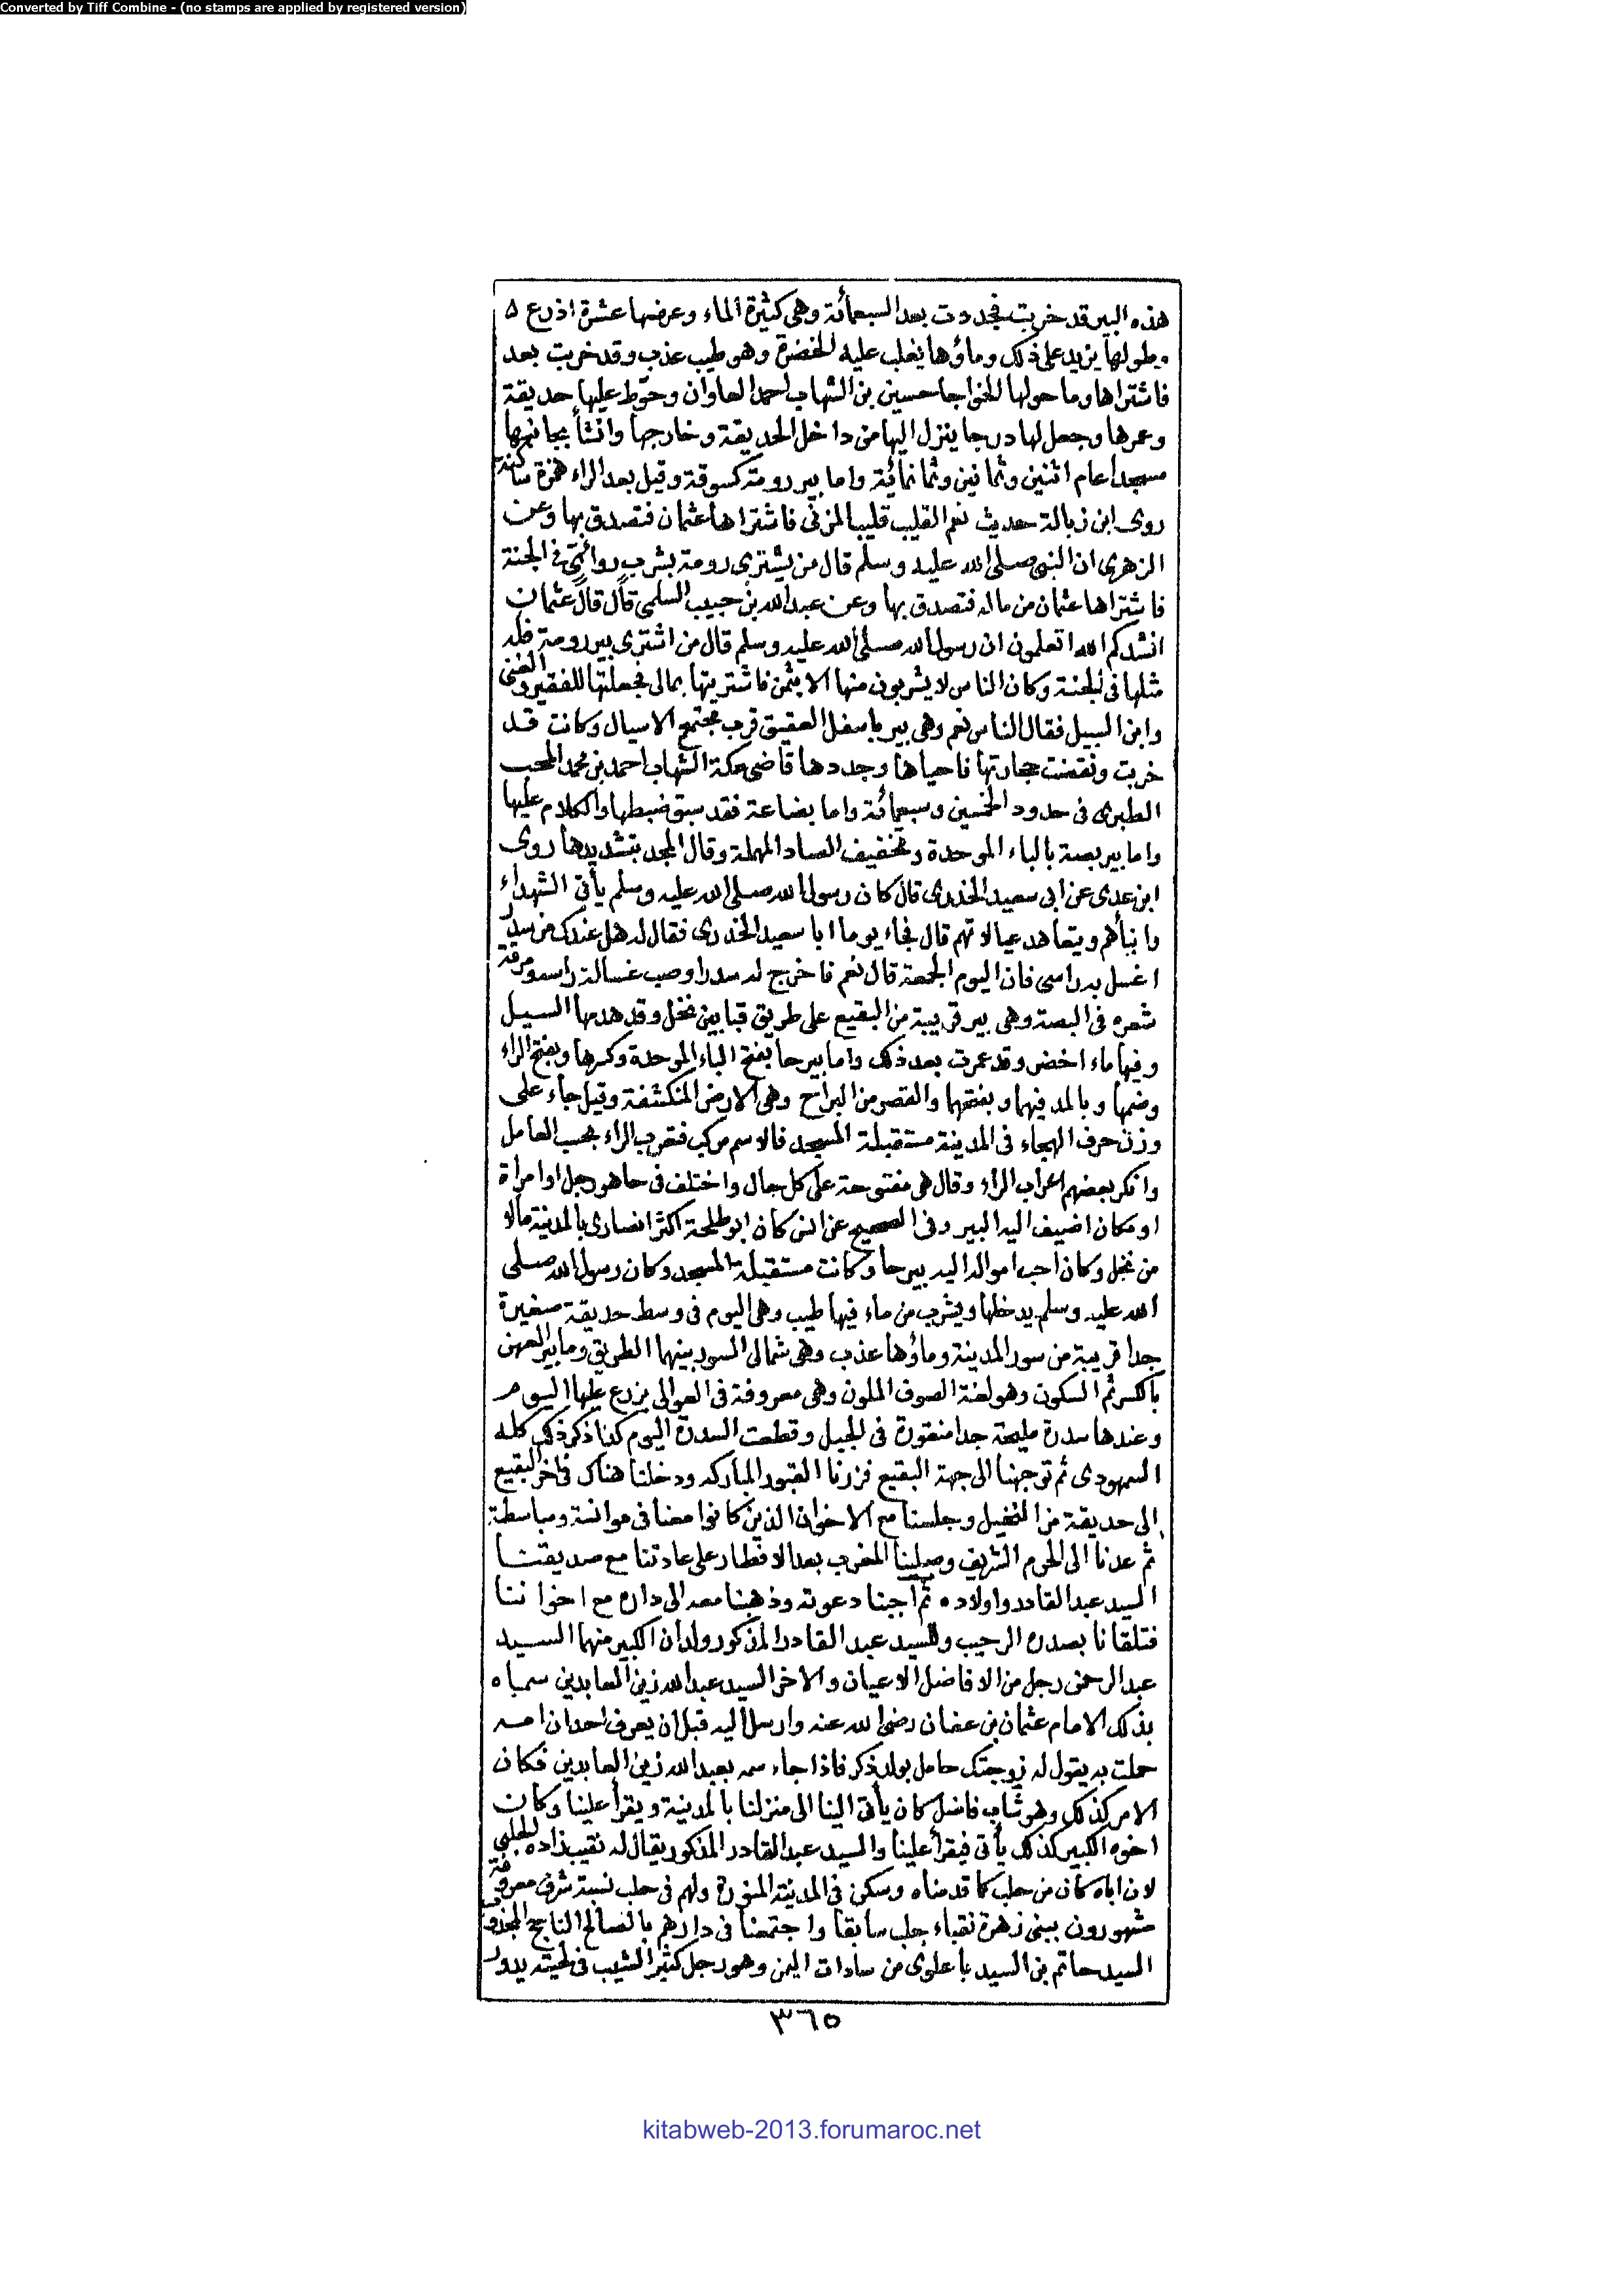 Converted by Tiff Combine - (no stamps are applied by registered version)
هذه البير قد خربت فجددت بعد السبعمائة وهى كثيرة الماء وعرضها عشرة اذرع
وطولها يزيد على ذلك وماؤها يغلب عليه الخضرة وهو طيب عذب وقد خربت بعد
فاشتراها وما حولها الخواجا حسين بن الشهاب احمد العاوان وحوّط عليها حديقة
وعمرها وجعل لها درجا ينزل اليها من داخل الحديقة وخارجها وانشأ بجانبها
مسجدا عام اثنين وثمانين وثمانمائة واما بير رومة كسوقة وقيل بعد الراء همزة ساكنة
روى ابن زبالة حديث نعم القليب قليب المزنى فاشتراها عثمان فتصدق بها وعن
الزهرى ان النبى صلى الله عليه وسلم قال من يشترى رومة بشرب رواء فى الجنة
فاشتراها عثمان من ماله فتصدق بها وعن عبد الله بن حبيب السلمى قال قال عثمان
انشدكم الله اتعلمون ان رسول الله صلى الله عليه وسلم قال من اشترى بير رومة فله
مثلها فى الجنة وكان الناس لا يشربون منها الا بثمن فاشتريتها بمالى فجعلتها للفقير والغنى
وابن السبيل فقال الناس نعم وهى بير باسفل العقيق قرب مجتمع الاسيال وكانت قد
خربت ونقضت حجارتها فاحياها وجددها قاضى مكة الشهاب احمد بن محمد المحب
الطبرى فى حدود الخمسين وسبعمائة واما بضاعة فقد سبق ضبطها والكلام عليها
واما بير بصة بالباء الموحدة وتخفيف الصاد المهملة وقال المجد بتشديدها روى
ابن عدى عن ابى سعيد الخدرى قال كان رسول الله صلى الله عليه وسلم يأتى الشهداء
وابناهم ويتعاهد عيالاتهم قال فجاء يوما ابا سعيد الخدرى فقال له هل عندك من سدر
اغسل به راسى فان اليوم الجمعة قال نعم فاخرج له سدرا وصب غسالة راسه ومرقة
شعره فى البصة وهى بير قريبة من البقيع على طريق قبا بين نخل وقد هدمها السيل
وفيها ماء اخضر وقد عمرت بعد ذلك واما بير حا بفتح الباء الموحدة وكسرها وبفتح الراء
وضمها وبالمد فيهما وبفتحهما والقصر من البراح وهى الارض المنكشفة وقيل جاء على
وزن حرف الهجاء فى المدينة مستقبلة المسجد فالاسم مركب فتعرب الراء بحسب العامل
وانكر بعضهم اعراب الراء وقال هى مفتوحة على كل حال واختلف فى حا هو رجل او امراة
او مكان اضيف اليه البير وفى الصحيح عن انس كان ابو طلحة اكثر انصارى بالمدينة مالا
من نخل وكان احب امواله اليه بير حا وكانت مستقبلة المسجد وكان رسول الله صلى
الله عليه وسلم يدخلها ويشرب من ماء فيها طيب وهى اليوم فى وسط حديقة صغيرة
جدا قريبة من سور المدينة وماؤها عذب وهى شمالى السور بينهما الطريق وما بير العهن
بالكسر ثم السكون وهو لغة الصوف الملون وهى معروفة فى العوالى يزرع عليها اليوم
وعندها سدرة مليحة جدا منقورة فى الجبل وقطعت السدرة اليوم كذا ذكر ذلك كله
السمهودى ثم توجهنا الى جهة البقيع فزرنا القبور المباركه ودخلنا هناك فى اخر البقيع
الى حديقة من النخيل وجلسنا مع الاخوان الذين كانوا معنا فى موانسة ومباسطة
ثم عدنا الى الحرم الشريف وصلينا المغرب بعد الافطار على عادتنا مع صديقنا
السيد عبد القادر واولاده ثم اجبنا دعوته وذهبنا معه الى داره مع اخواننا
فتلقانا بصدره الرحيب وللسيد عبد القادر المذكور ولدان الكبير منهما السيد
عبد الرحمن رجل من الافاضل الاعيان والاخر السيد عبد الله زين العابدين سماه
بذلك الامام عثمان بن عفان رضى الله عنه وارسل اليه قبل ان يعرف احد ان امه
حملت به يقول له زوجتك حامل بولد ذكر فاذا جاء سمه بعبد الله زين العابدين فكان
الامر كذلك وهو شاب فاضل كان يأتى الينا الى منزلنا بالمدينة ويقرأ علينا وكان
اخوه الكبير كذلك يأتى فيقرأ علينا والسيد عبد القادر المذكور يقال له نقيب زاده الحلبى
لان اباه كان من حلب كما قدمناه وسكن فى المدينة المنورة ولهم فى حلب نسبة شرف معروفة
مشهورون ببنى زهرة نقباء حلب سابقا واجتمعنا فى دارهم بالصالح الناجح المجذوب
السيد حاتم بن السيد باعلوى من سادات اليمن وهو رجل كثير الشيب فى لحيته يدور
٣٦٥
kitabweb-2013.forumaroc.net